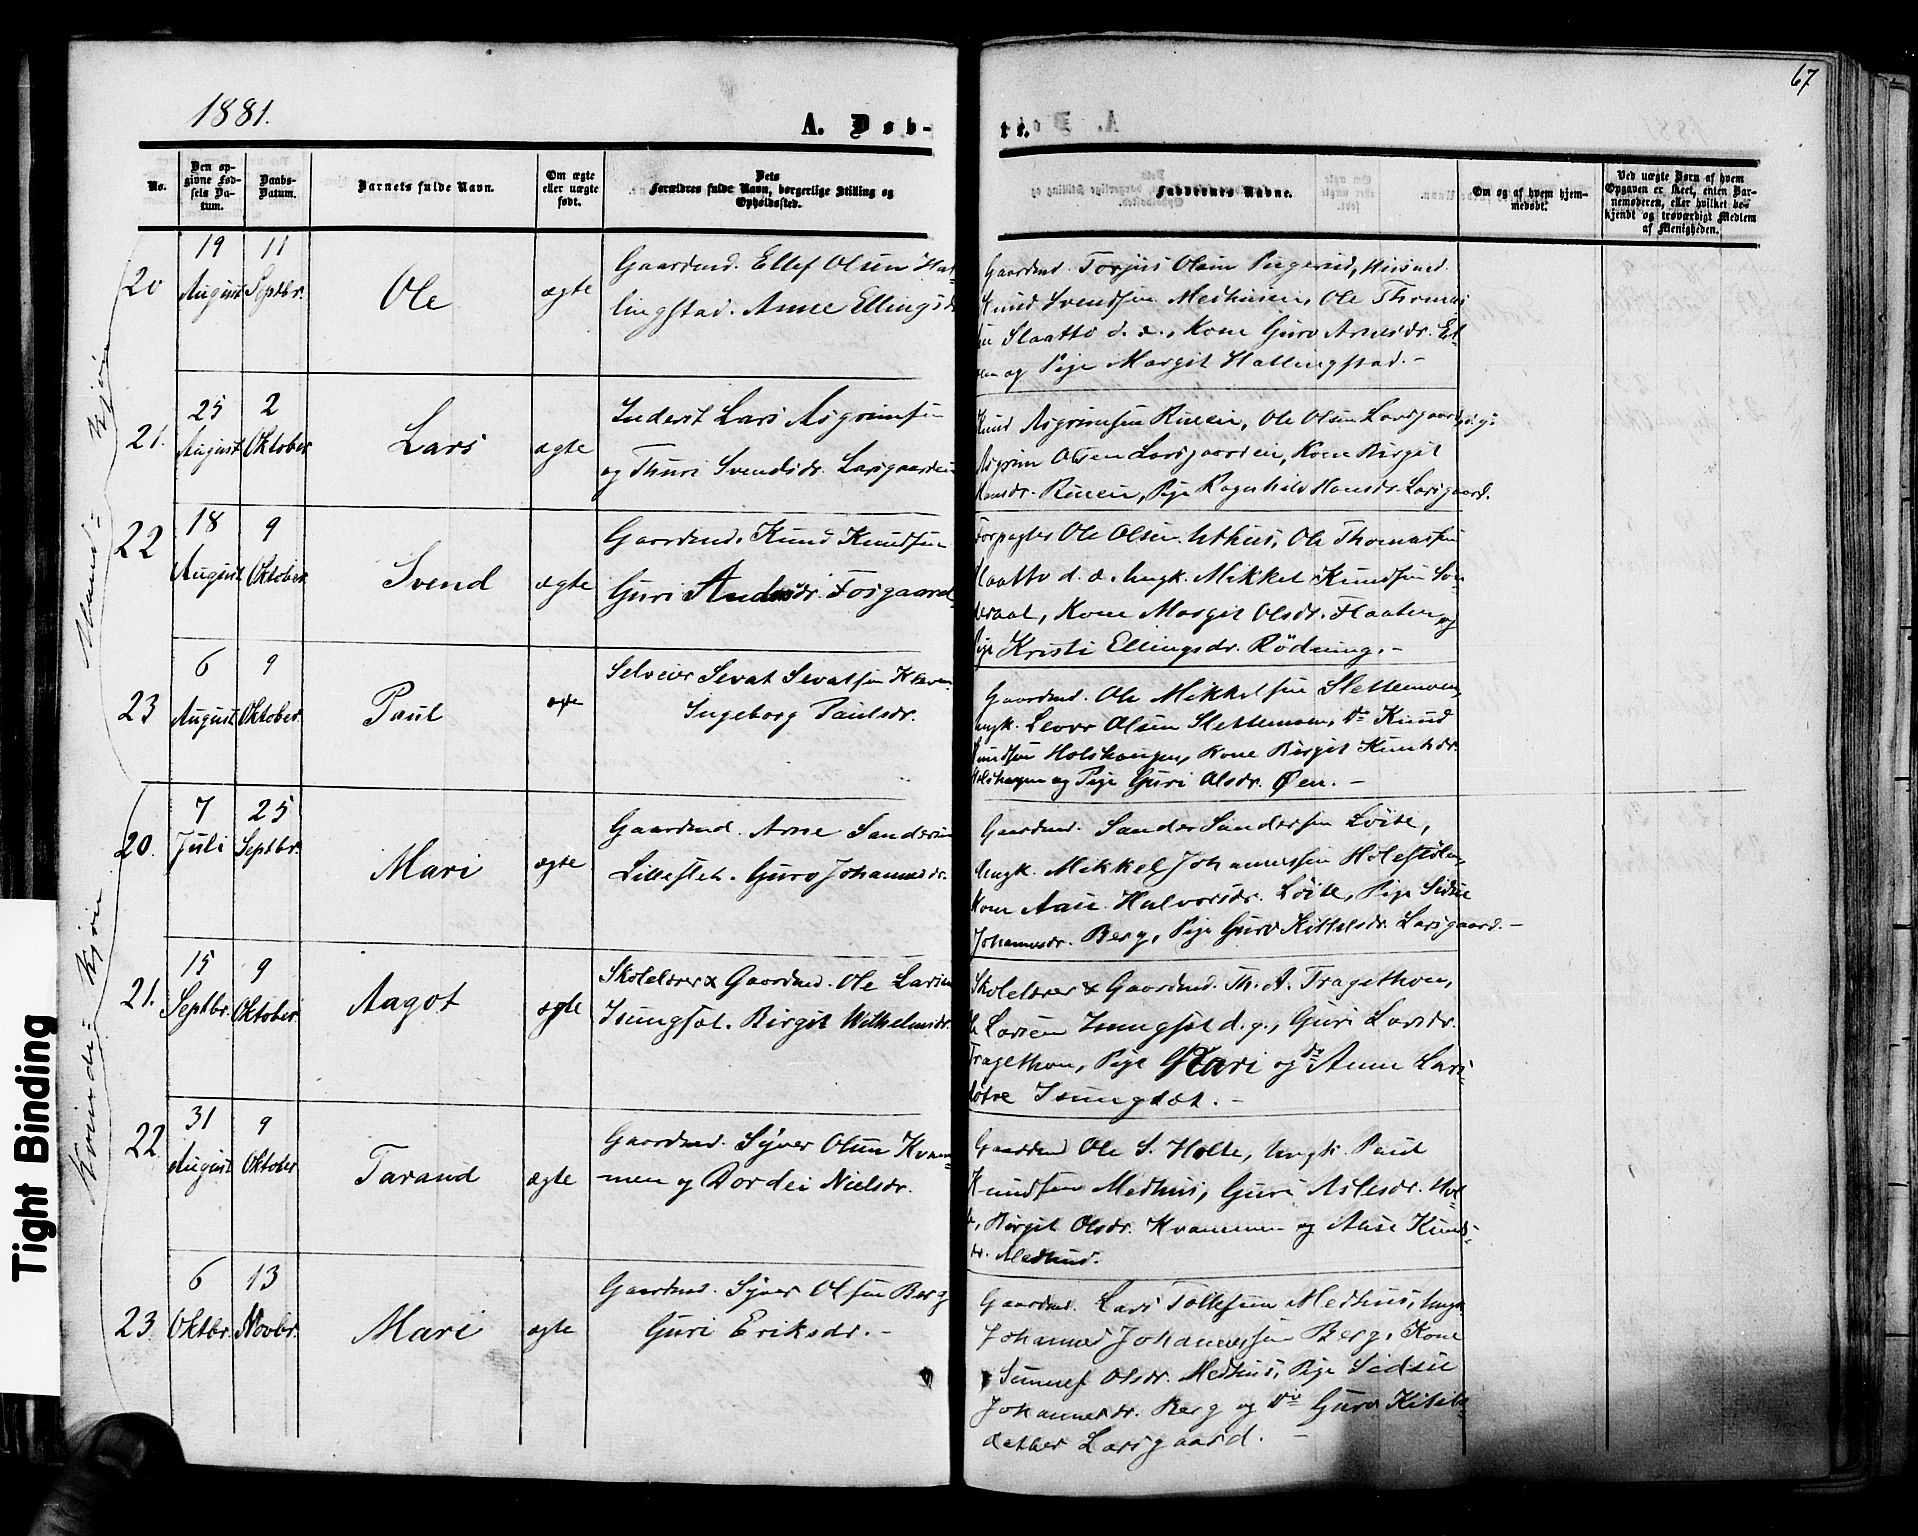 1881.
67
A. Døb-
te.
No.
Den op-
givne Fød-
sels Da-
tum.
Daabs-
Datum.
Barnets fulde Navn.
Om ægte
eller uægte
født.
Dets
Forældres fulde Navn, borgerlige Stilling og
Opholdssted.
Faddernes Navne.
Om og af hvem hjem-
medøbt.
Ved uægte Børn af hvem
Opgaven er skeet, enten Bar-
nemoderen, eller hvilket be-
kjendt og troværdigt Medlem
af Menigheden.
Mand- Kjøn
20
19
August
11
Septbr.
Ole
ægte
Gaardmd. Ellef Olsen Hal-
lingstad. Anne Ellingsdr
Gaardmd. Torjus Olsen
Knud Svendsen Medhusen, Ole Thomas
sen Slaatto d. æ., Kone Guro Arnesdr.
og Pige Margit Hallingstad. -
21.
25
August
2
Oktober
Lars
ægte
Inderst Lars Asgrimsen
og Thuri Svendsdr. Larsgaarden
Knud Asgrimsen Rueen, Ole Olsen Larsgaard d. y.
Asgrim Olsen Larsgaarden, Kone Birgit
Hansdr. Rueen, Pige Ragnhild Hansdr. Larsgaard.
22
18
August
9
Oktober
Svend
ægte
Gaardmd. Knud Knudsen
Guri Andersdr. Fosgaard
Forpagter Ole Olsen Uthus, Ole Thomassen
Slaatto d. æ. Ungk. Mikkel Knudsen Søn-
Kone Margit Olsdr. Flaaten og
Pige Kristi Ellingsdr. Rødning. -
23
6
August
9
Oktober
Paul
ægte
Selveier Sevat Sevatsen
Ingeborg Paulsdr.
Gaardmd. Ole Mikkelsen Slettemoen,
Ungk. Leovr Olsen Slettemoen, do Knud
Knudsen Holshaugen, Kone Birgit Knudsdr.
Holshagen og Pige Guri Olsdr. Øen. -
Kvinde- Kjøn
20.
7
Juli
25
Septbr.
Mari
ægte
Gaardmd. Arne Sandersen
Lilleslet. Guro Johannesdr.
Gaardmd. Sander Sandersen Løite,
Ungk. Mikkel Johannessen Holestølen,
Kone Aase Halvorsdr. Løite, Pige Sidsel
Johannesdr. Berg, Pige Guro Kittelsdr. Larsgaard. -
21.
15
Septbr.
9
Oktober
Aagot
ægte
Skolelærer & Gaardmd. Ole Larsen
Isungset. Birgit Wilhelmsdr.
Skolelærer & Gaardmd. Th. A. Tragethon,
Ole Larsen Isungset d. y., Guri Larsdr.
Tragethon, Pige Kari og do Anne Lars-
døtre Isungset. -
22
31
August
9
Oktober
Tarand
ægte
Gaardmd. Syver Olsen Kvam-
men og Dordei Nielsdr.
Gaardmd Ole S. Holte, Ungk. Paul
Knudsen Medhus, Guri Aslesdr. Hol-
te, Birgit Olsdr. Kvammen og Aase Knuds-
dr. Medhus.
23.
6
Oktbr.
13
Novbr.
Mari
ægte
Gaardmd. Syver Olsen Berg
Guri Eriksdr. -
Gaardmd. Lars Tollefsen Medhus, Ungk.
Johannes Johannessen Berg, Kone
Sunnef Olsdr. Medhus, Pige Sidsel
Johannesdr. Berg og do Guro Kittels-
datter Larsgaard. -
Tight Binding